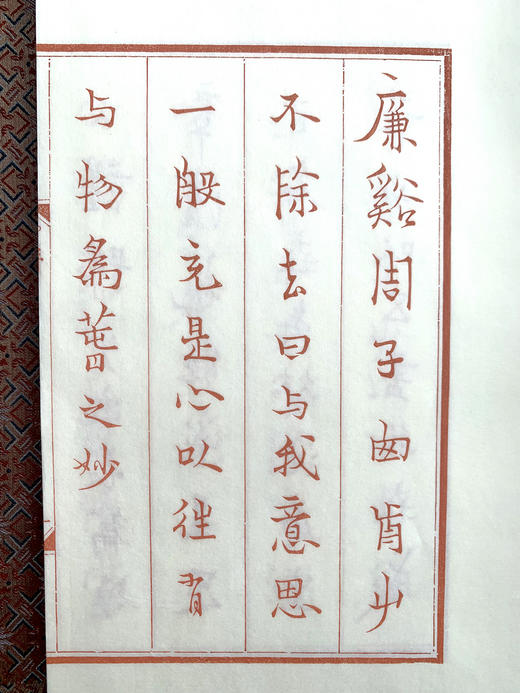 廉谿周子囱歬屮
不除去曰与我意思
一般充是心以往有
与物為萅之妙